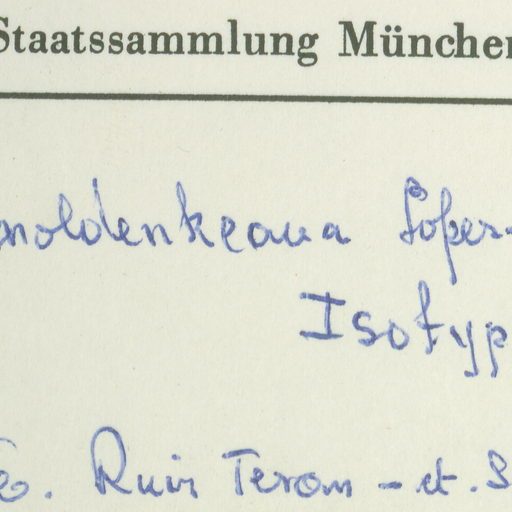 Staatssammlung München
moldenkeana López-
Isotyp
Ruiz Teran - et. S